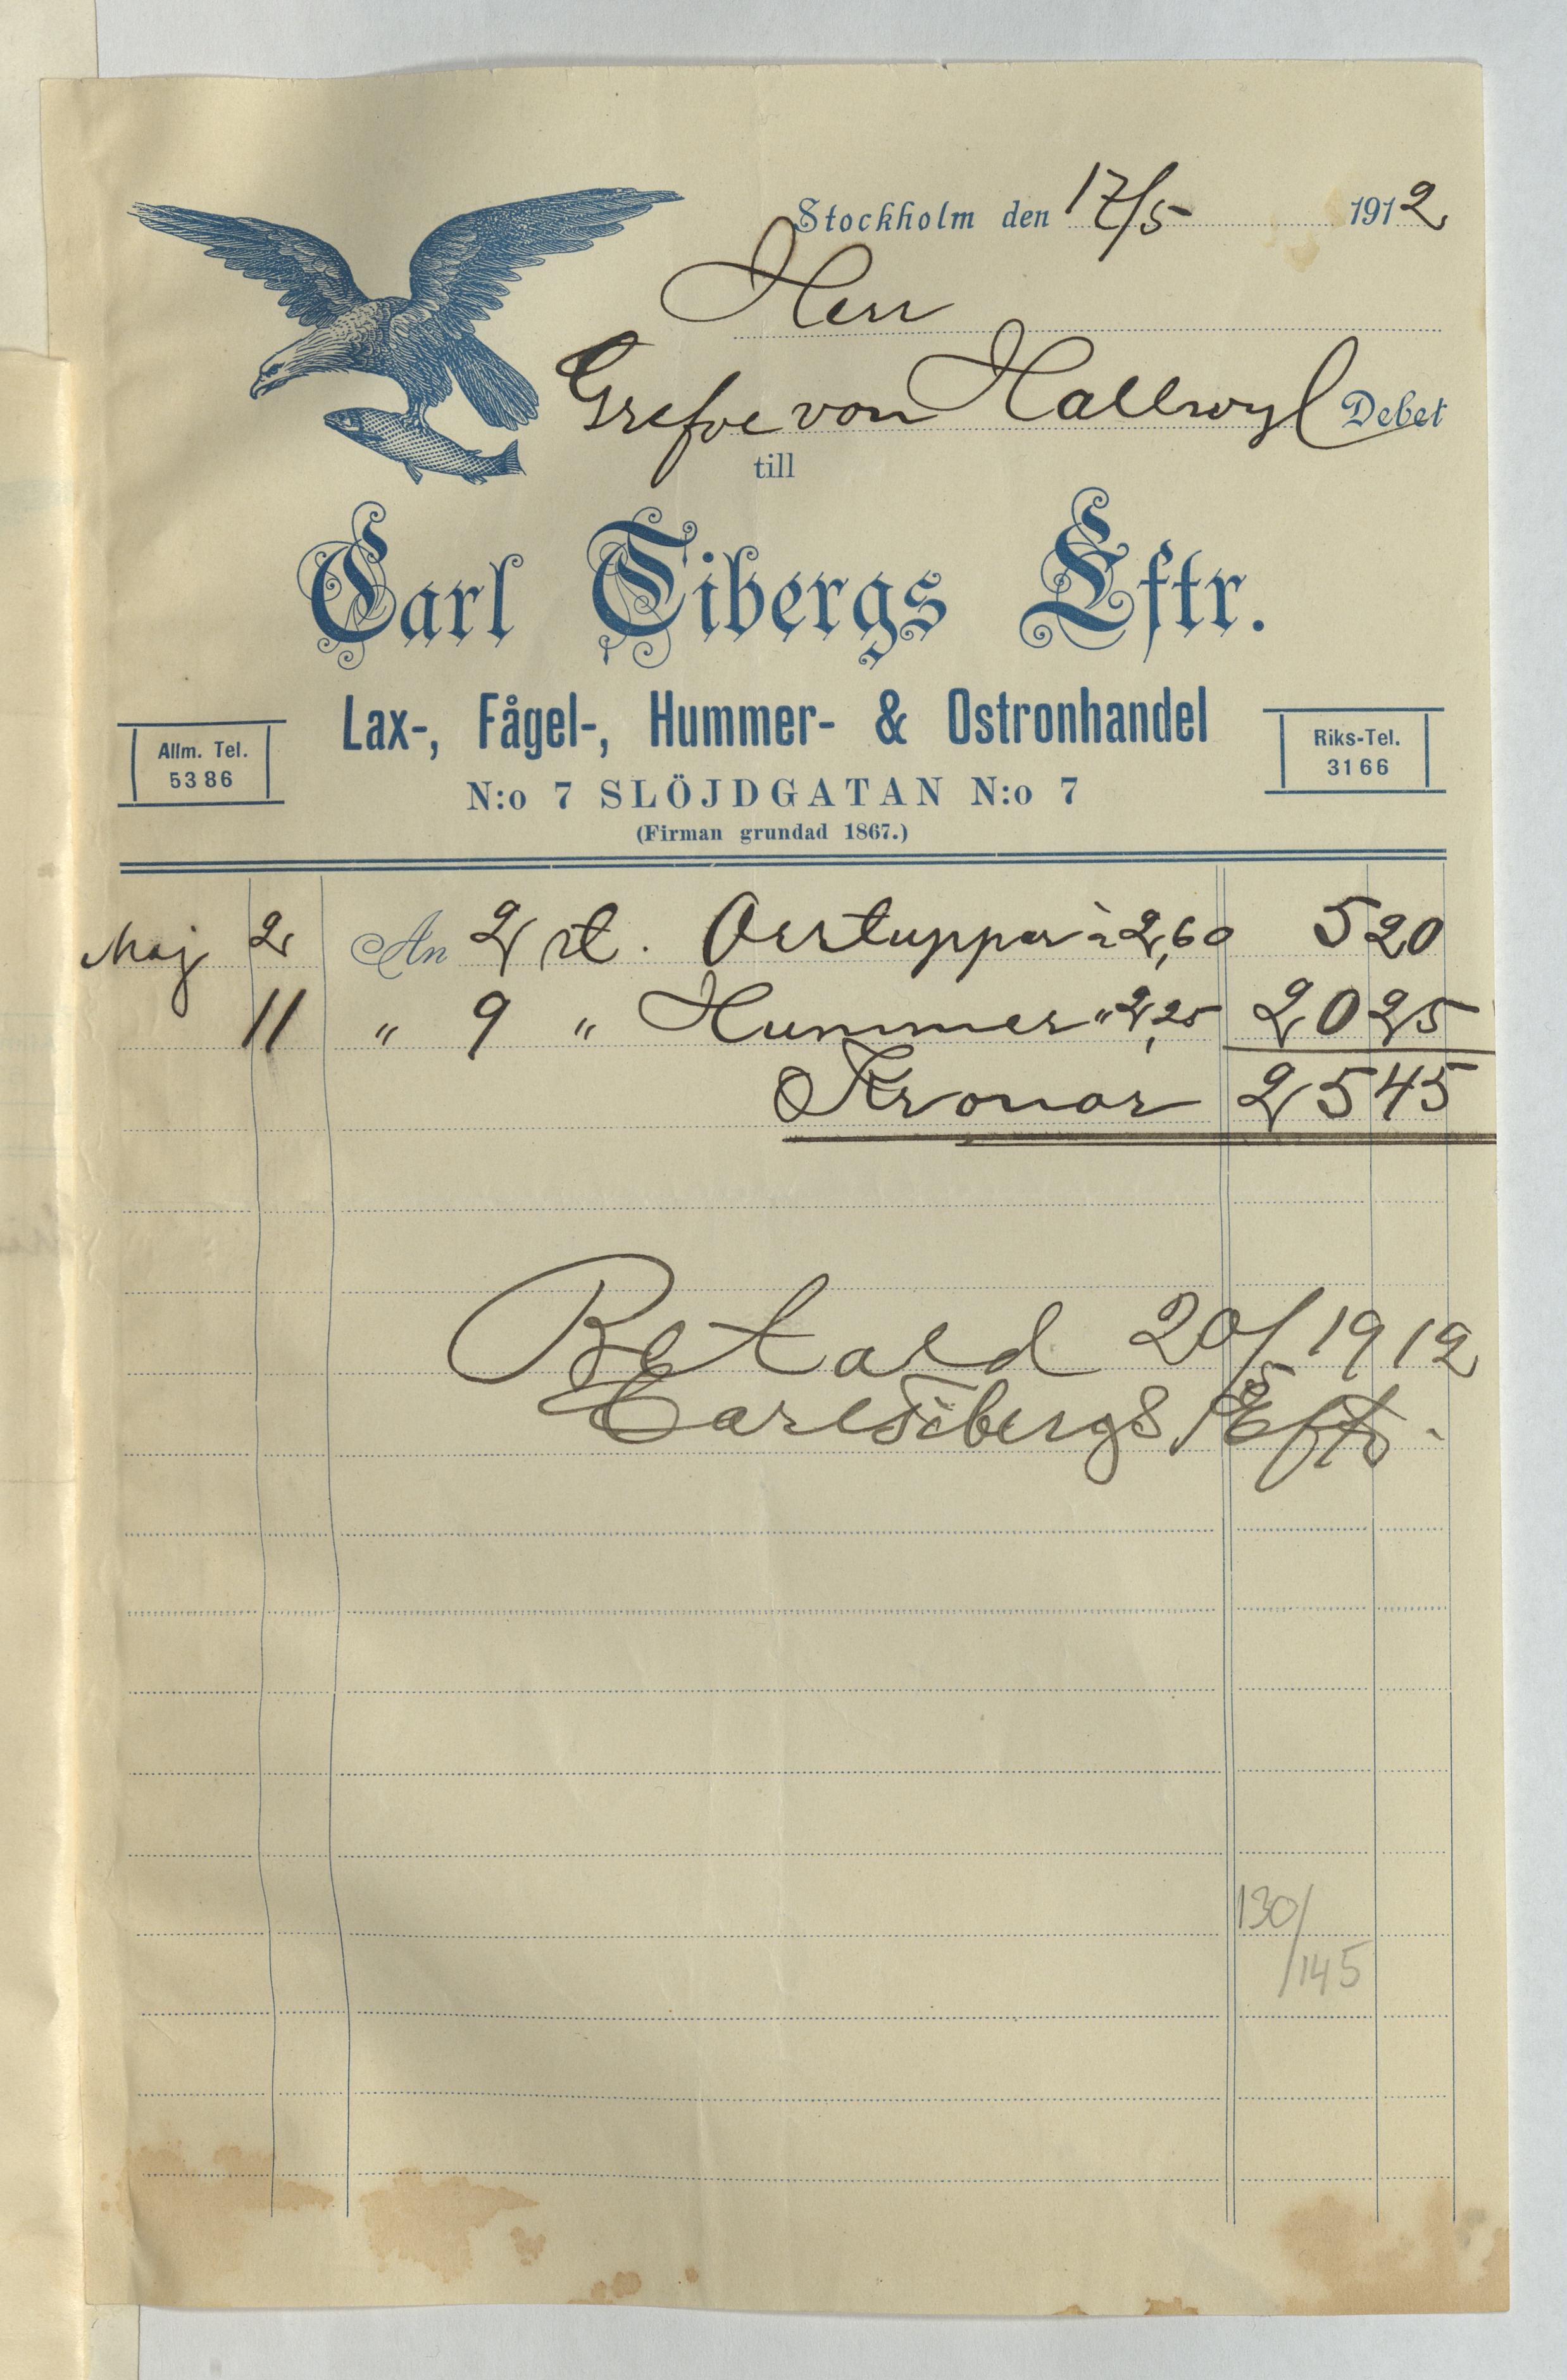 Stockholm den 17/5 1912
Herr
Grefve von Hallwyl Debet
till
Carl Tibergs Eftr.
Lax-, Fågel-, Hummer- & Ostronhandel
Allm. Tel.
5386
Riks-Tel.
3166
N:o 7 SLÖJDGATAN N:o 7
(Firman grundad 1867.)
Maj 2 An 2 st. Orrtuppar à 2,60 5 20
11 " 9 " Hummer " 2,25 20 25
Kronor 25 45
Betald 20/5 1912
Carl Tibergs Eftr.
130/
/145